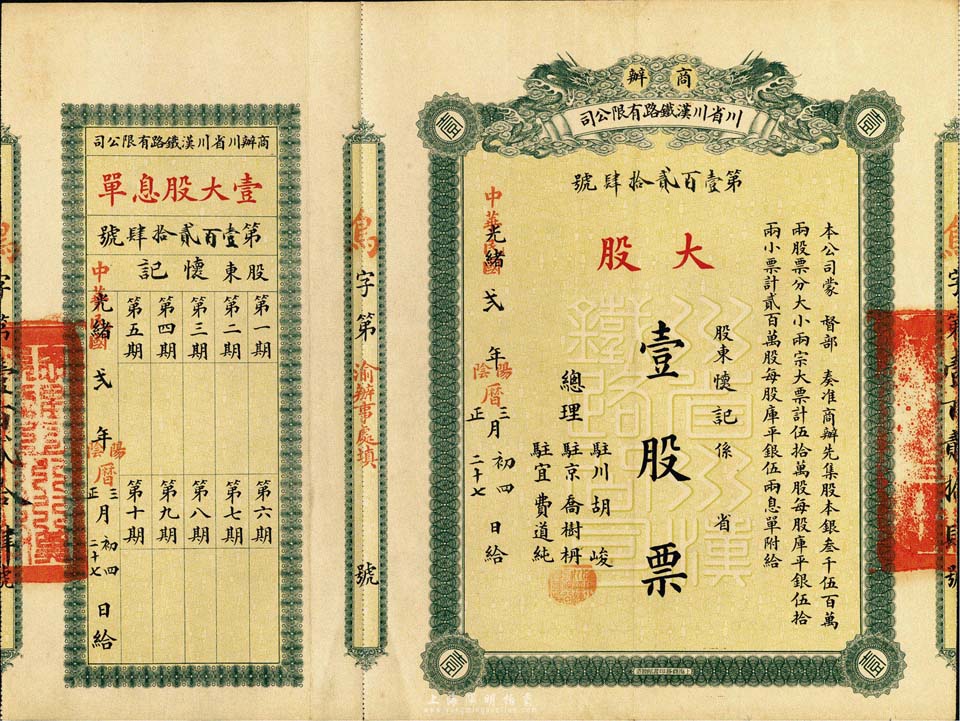 商辦
川省川漢鐵路有限公司
第壹百貳拾肆號
本公司蒙 督部 奏准商辦先集股本銀叁千伍百萬
兩股票分大小兩宗大票計伍拾萬股每股庫平銀伍拾
兩小票計貳百萬股每股庫平銀伍兩息單附給
大股
股東懷記係 省
壹股票
總理
駐川胡峻
駐京喬樹枏
駐宜費道純
中華民國
光緒 弍 年 三月初四 日給
陽曆
陰 正 二十七
字第 號
渝辦事處填
商辦川省川漢鐵路有限公司
壹大股息單
第壹百貳拾肆號
股東懷記
第一期
第二期
第三期
第四期
第五期
第六期
第七期
第八期
第九期
第十期
中華民國
光緒 弍 年 三月初四 日給
陽曆
陰 正 二十七
字第壹百貳拾肆號
第壹百貳拾肆號